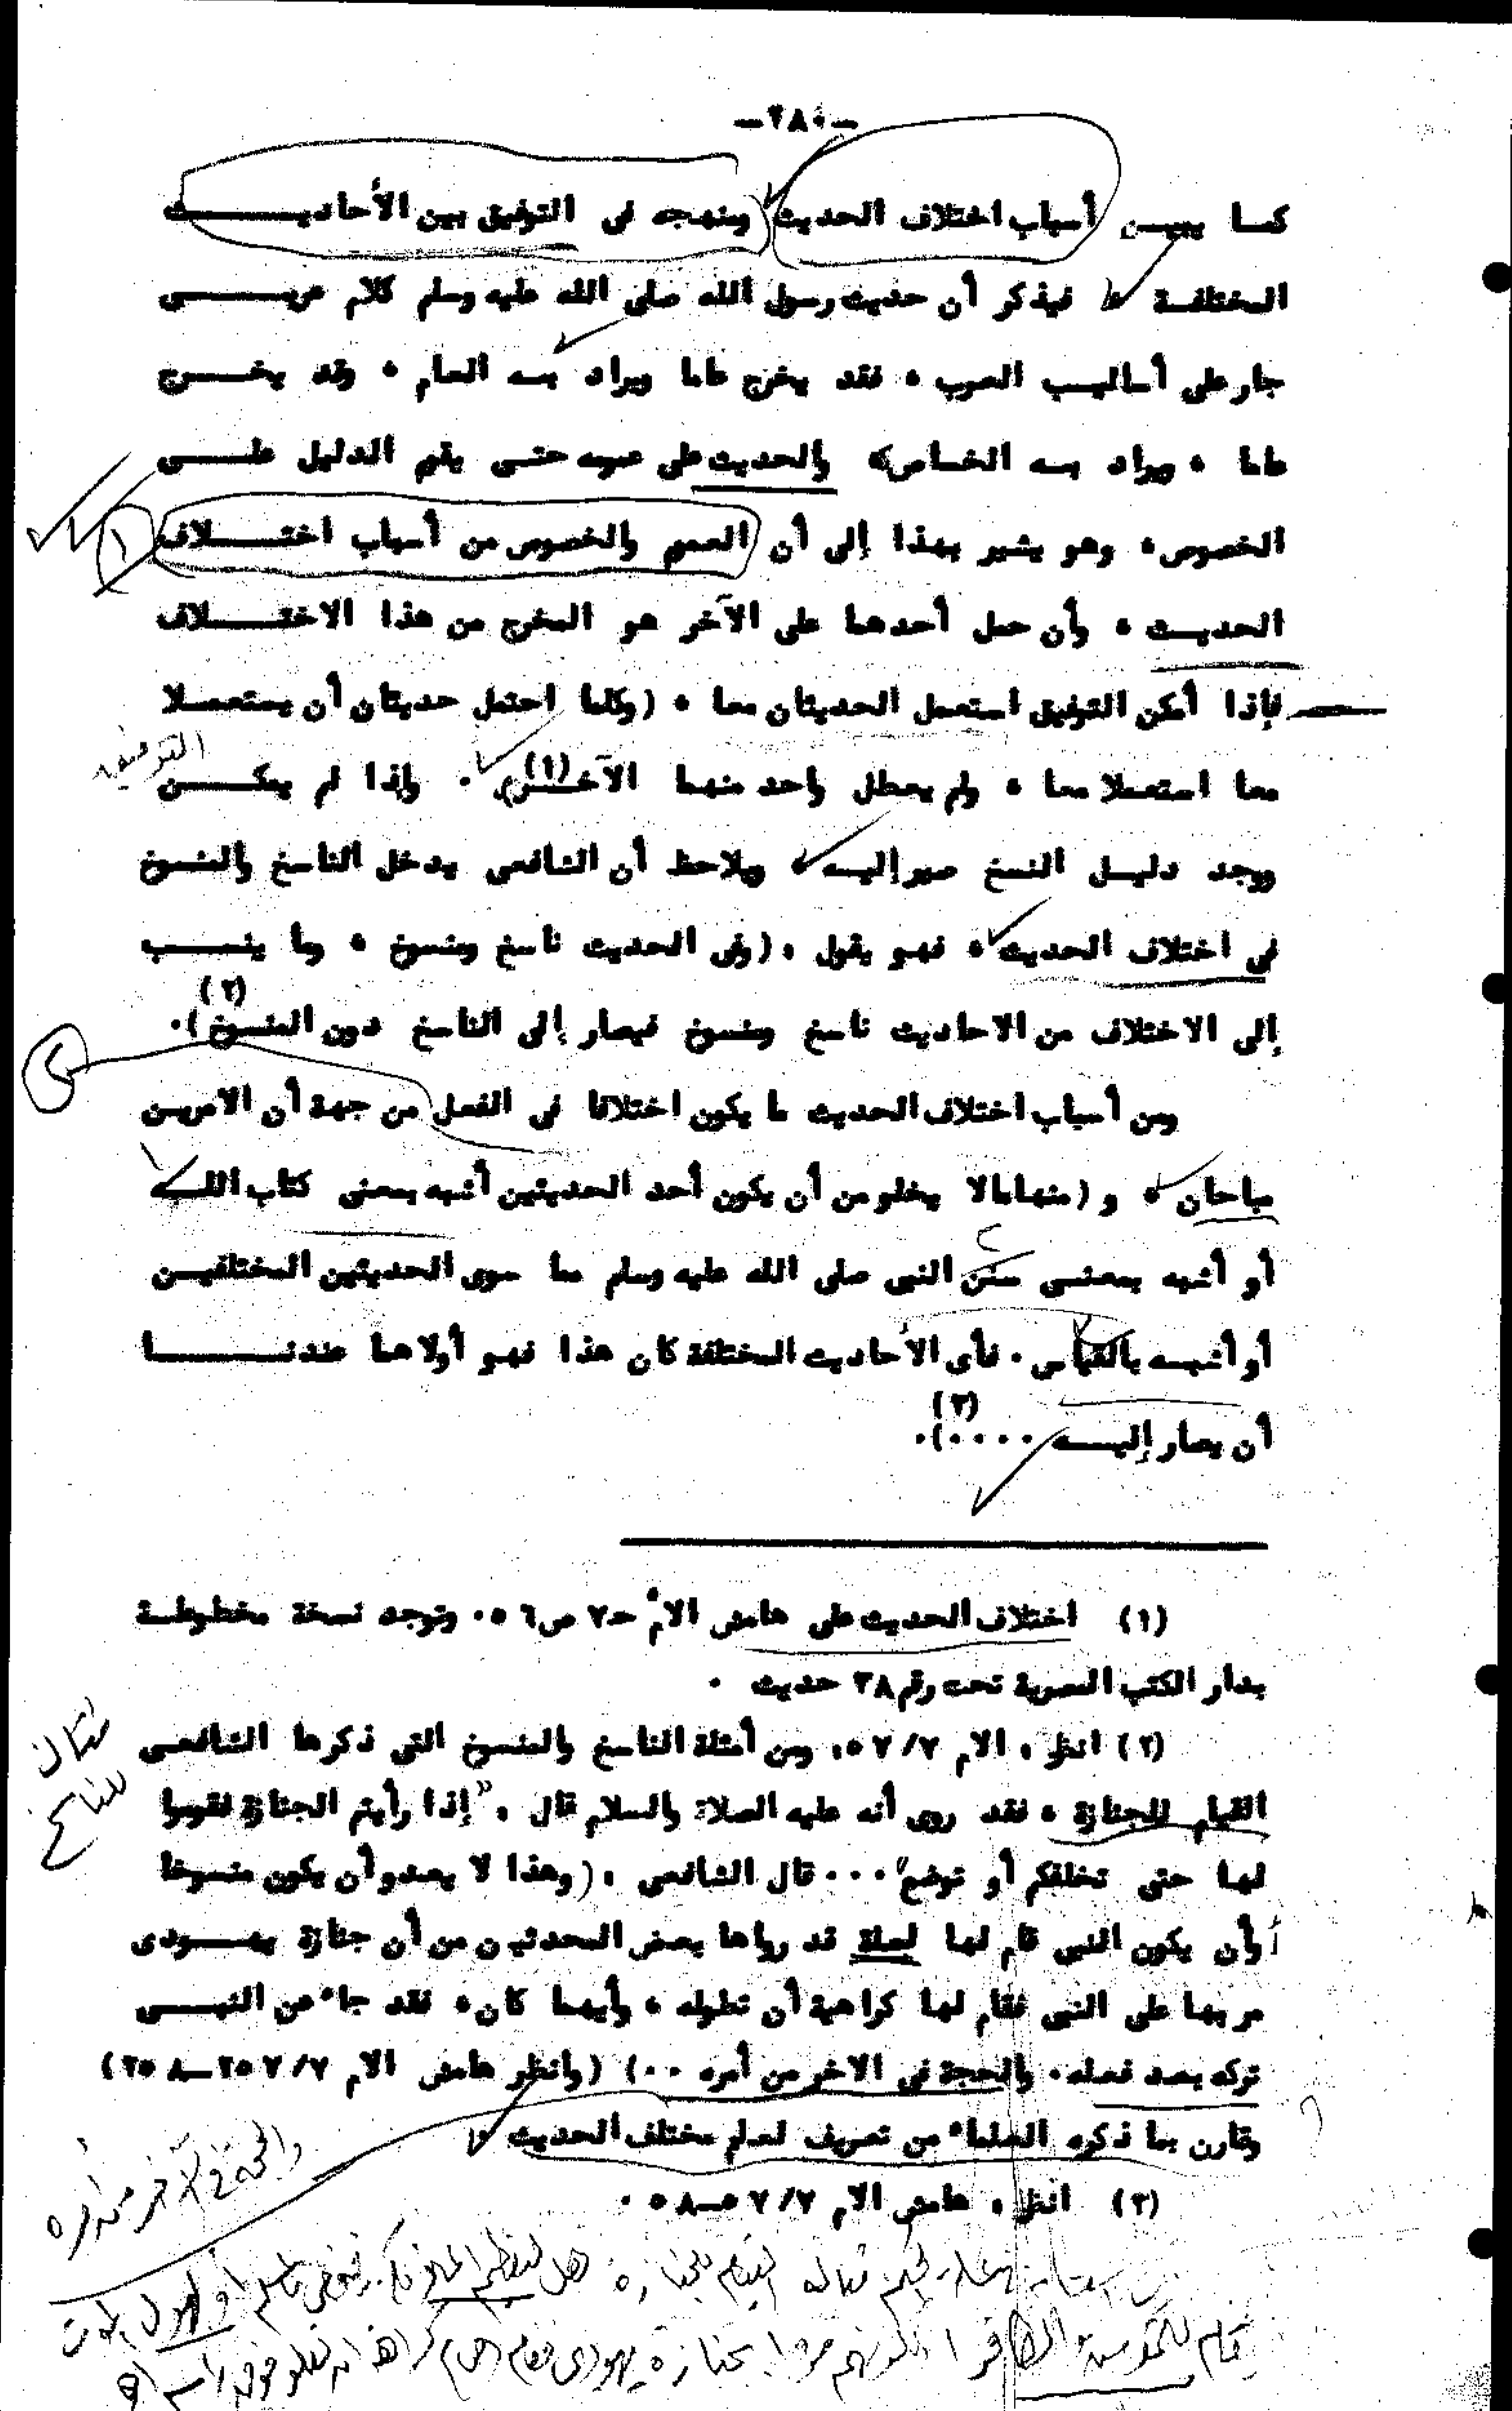 -٢٨٠-
كما يبين أسباب اختلاف الحديث ومنهجه فى التوفيق بين الأحاديث
المختلفة ، فيذكر أن حديث رسول الله صلى الله عليه وسلم كلام عربى
جار على أساليب العرب ، فقد يخرج عاما ويراد به العام ، وقد يخرج
عاما ، ويراد به الخاص، والحديث على عمومه حتى يقوم الدليل على
الخصوص، وهو يشير بهذا إلى أن العموم والخصوص من أسباب اختلاف
الحديث ، وأن حمل أحدهما على الآخر هو المخرج من هذا الاختلاف
فإذا أمكن التوفيق استعمل الحديثان معا ، (وكلما احتمل حديثان أن يستعملا
التوفيق
معا استعملا معا ، ولم يعطل واحد منهما الآخر)(١) . وإذا لم يمكن
ووجد دليل النسخ صير إليه ، ويلاحظ أن الشافعى يدخل الناسخ والمنسوخ
فى اختلاف الحديث ، فهو يقول ، (وفى الحديث ناسخ ومنسوخ ، وما ينسب
إلى الاختلاف من الاحاديث ناسخ ومنسوخ فيصار إلى الناسخ دون المنسوخ)(٢).
ومن أسباب اختلاف الحديث ما يكون اختلافا فى الفعل من جهة أن الامرين
مباحان ، و (منها مالا يخلو من أن يكون أحد الحديثين أشبه بمعنى كتاب الله
أو أشبه بمعنى سنن النبى صلى الله عليه وسلم مما سوى الحديثين المختلفين
أو أشبه بالقياس . فأى الأحاديث المختلفة كان هذا فهو أولاها عندنا
أن يصار إليه ....)(٣).
(١) اختلاف الحديث على هامش الأم ح٧ ص٥٦ . وتوجد نسخة مخطوطة
بدار الكتب المصرية تحت رقم ٣٨ حديث .
(٢) انظر ، الام ٥٧/٧، ومن أمثلة الناسخ والمنسوخ التى ذكرها الشافعى
القيام للجنازة ، فقد روى أنه عليه الصلاة والسلام قال ، "إذا رأيتم الجنازة فقوموا
لها حتى تخلفكم أو توضع" ... قال الشافعى ، (وهذا لا يعدو أن يكون منسوخا
أو أن يكون النبى قام لها لعلة قد رواها بعض المحدثين من أن جنازة يهودى
مر بها على النبى فقام لها كراهية أن تطوله ، وأيهما كان، فقد جاء عن النبى
تركه بعد فعله. والحجة فى الاخر من أمره ..) (وانظر هامش الام ٢٥٧/٧ــ٢٥٨)
وقارن بما ذكره العلماء من تعريف لعلم مختلف الحديث .
(٣) انظر ، هامش الام ٥٧/٧ــ٥٨ .
والحجة في الآخر من أمره